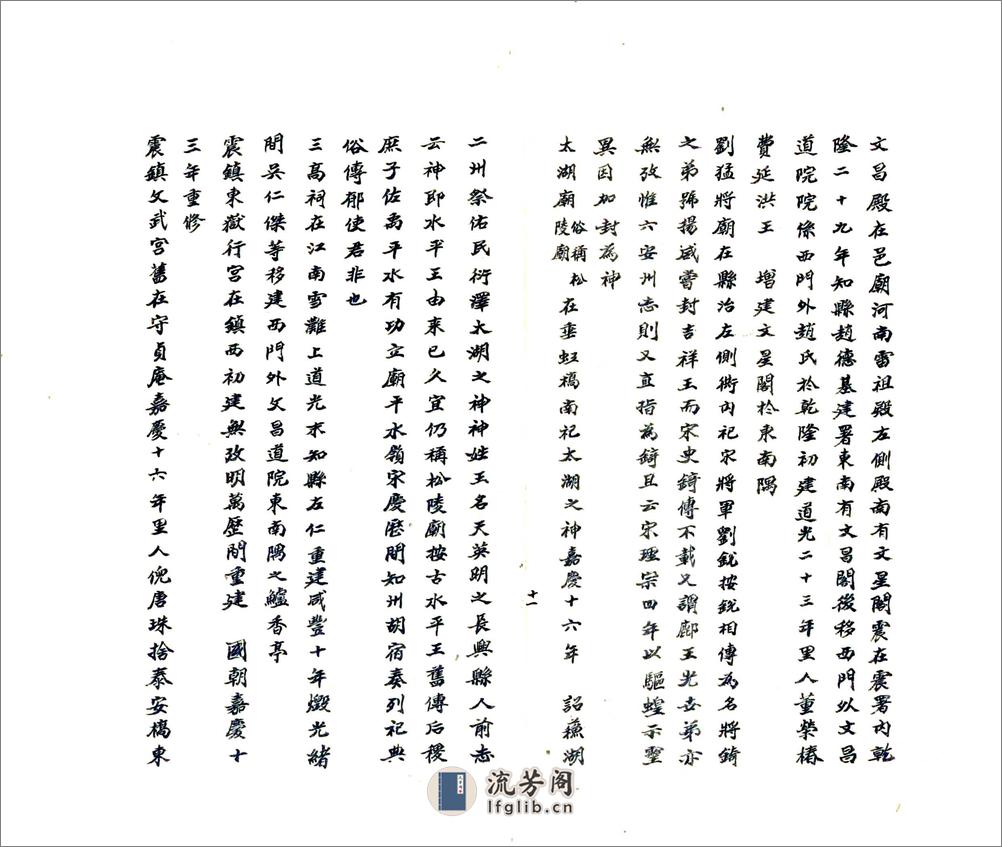 文昌殿在邑廟河南雷祖殿左側殿南有文星閣震在震署內乾
隆二十九年知縣趙德基建署東南有文昌閣後移西門外文昌
道院院係西門外趙氏於乾隆初建道光二十三年里人董榮椿
費延洪王　增建文星閣於東南隅
劉猛將廟在縣治左側衖內祀宋將軍劉銳按銳相傳為名將錡
之弟號揚威嘗封吉祥王而宋史錡傳不載又謂鄜王光世弟亦
無攷惟六安州志則又直指為錡且云宋理宗四年以驅蝗示靈
異因加封為神
太湖廟俗稱松陵廟在垂虹橋南祀太湖之神嘉慶十六年　詔蘇湖
十一
二州祭佑民衍澤太湖之神神姓王名天英明之長興縣人前志
云神即水平王由來已久宜仍稱松陵廟按古水平王舊傳后稷
庶子佐禹平水有功立廟平水嶺宋慶歷間知州胡宿奏列祀典
俗傳郁使君非也
三高祠在江南雪灘上道光末知縣左仁重建咸豐十年燬光緒
間吳仁傑等移建西門外文昌道院東南隅之鱸香亭
震鎮東嶽行宮在鎮西初建無攷明萬歷間重建　國朝嘉慶十
三年重修
震鎮文武宮舊在守貞庵嘉慶十六年里人倪唐珠捨泰安橋東
流芳阁
lfglib.cn